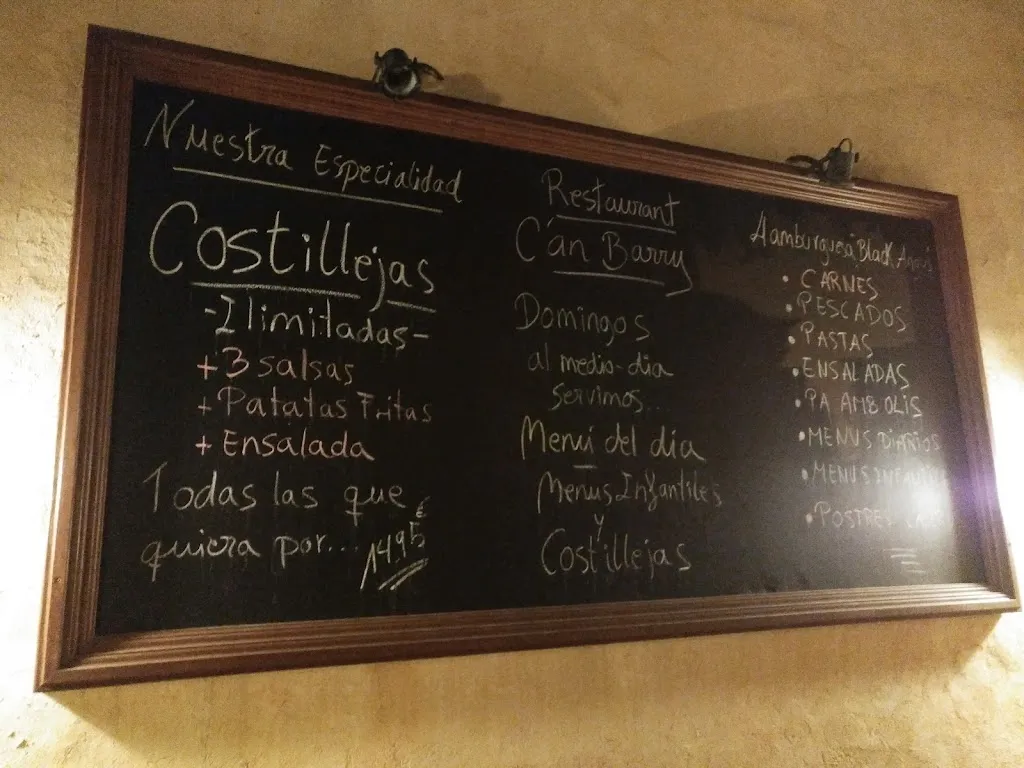 Nuestra Especialidad
Costillejas
-Ilimitadas-
+ 3 salsas
+ Patatas Fritas
+ Ensalada
Todas las que
quiera por... 14,95 €
Restaurant
C'an Barry
Domingos
al medio-dia
servimos...
Menú del dia
Menus Infantiles
y
Costillejas
Hamburguesa Black Angus
• CARNES
• PESCADOS
• PASTAS
• ENSALADAS
• PA AMB OLIS
• MENUS DIARIOS
• MENUS INFANTIL
• POSTRES